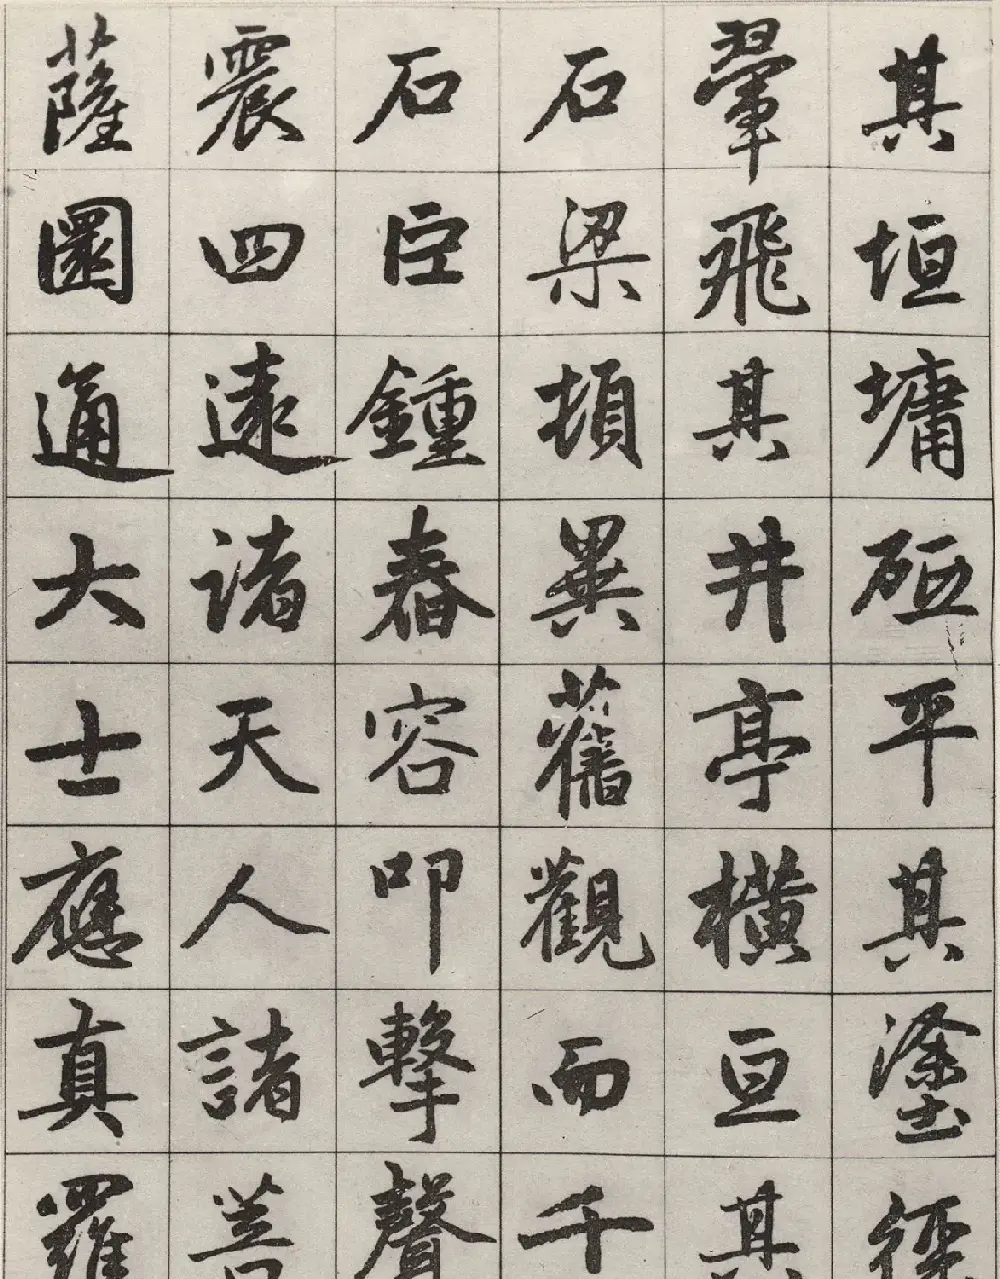 其垣墉砥平其塗徑
翬飛其井亭橫亘其
石梁頓異舊觀而千
石巨鍾舂容叩擊聲
震四遠諸天人諸善
薩圜通大士應真羅